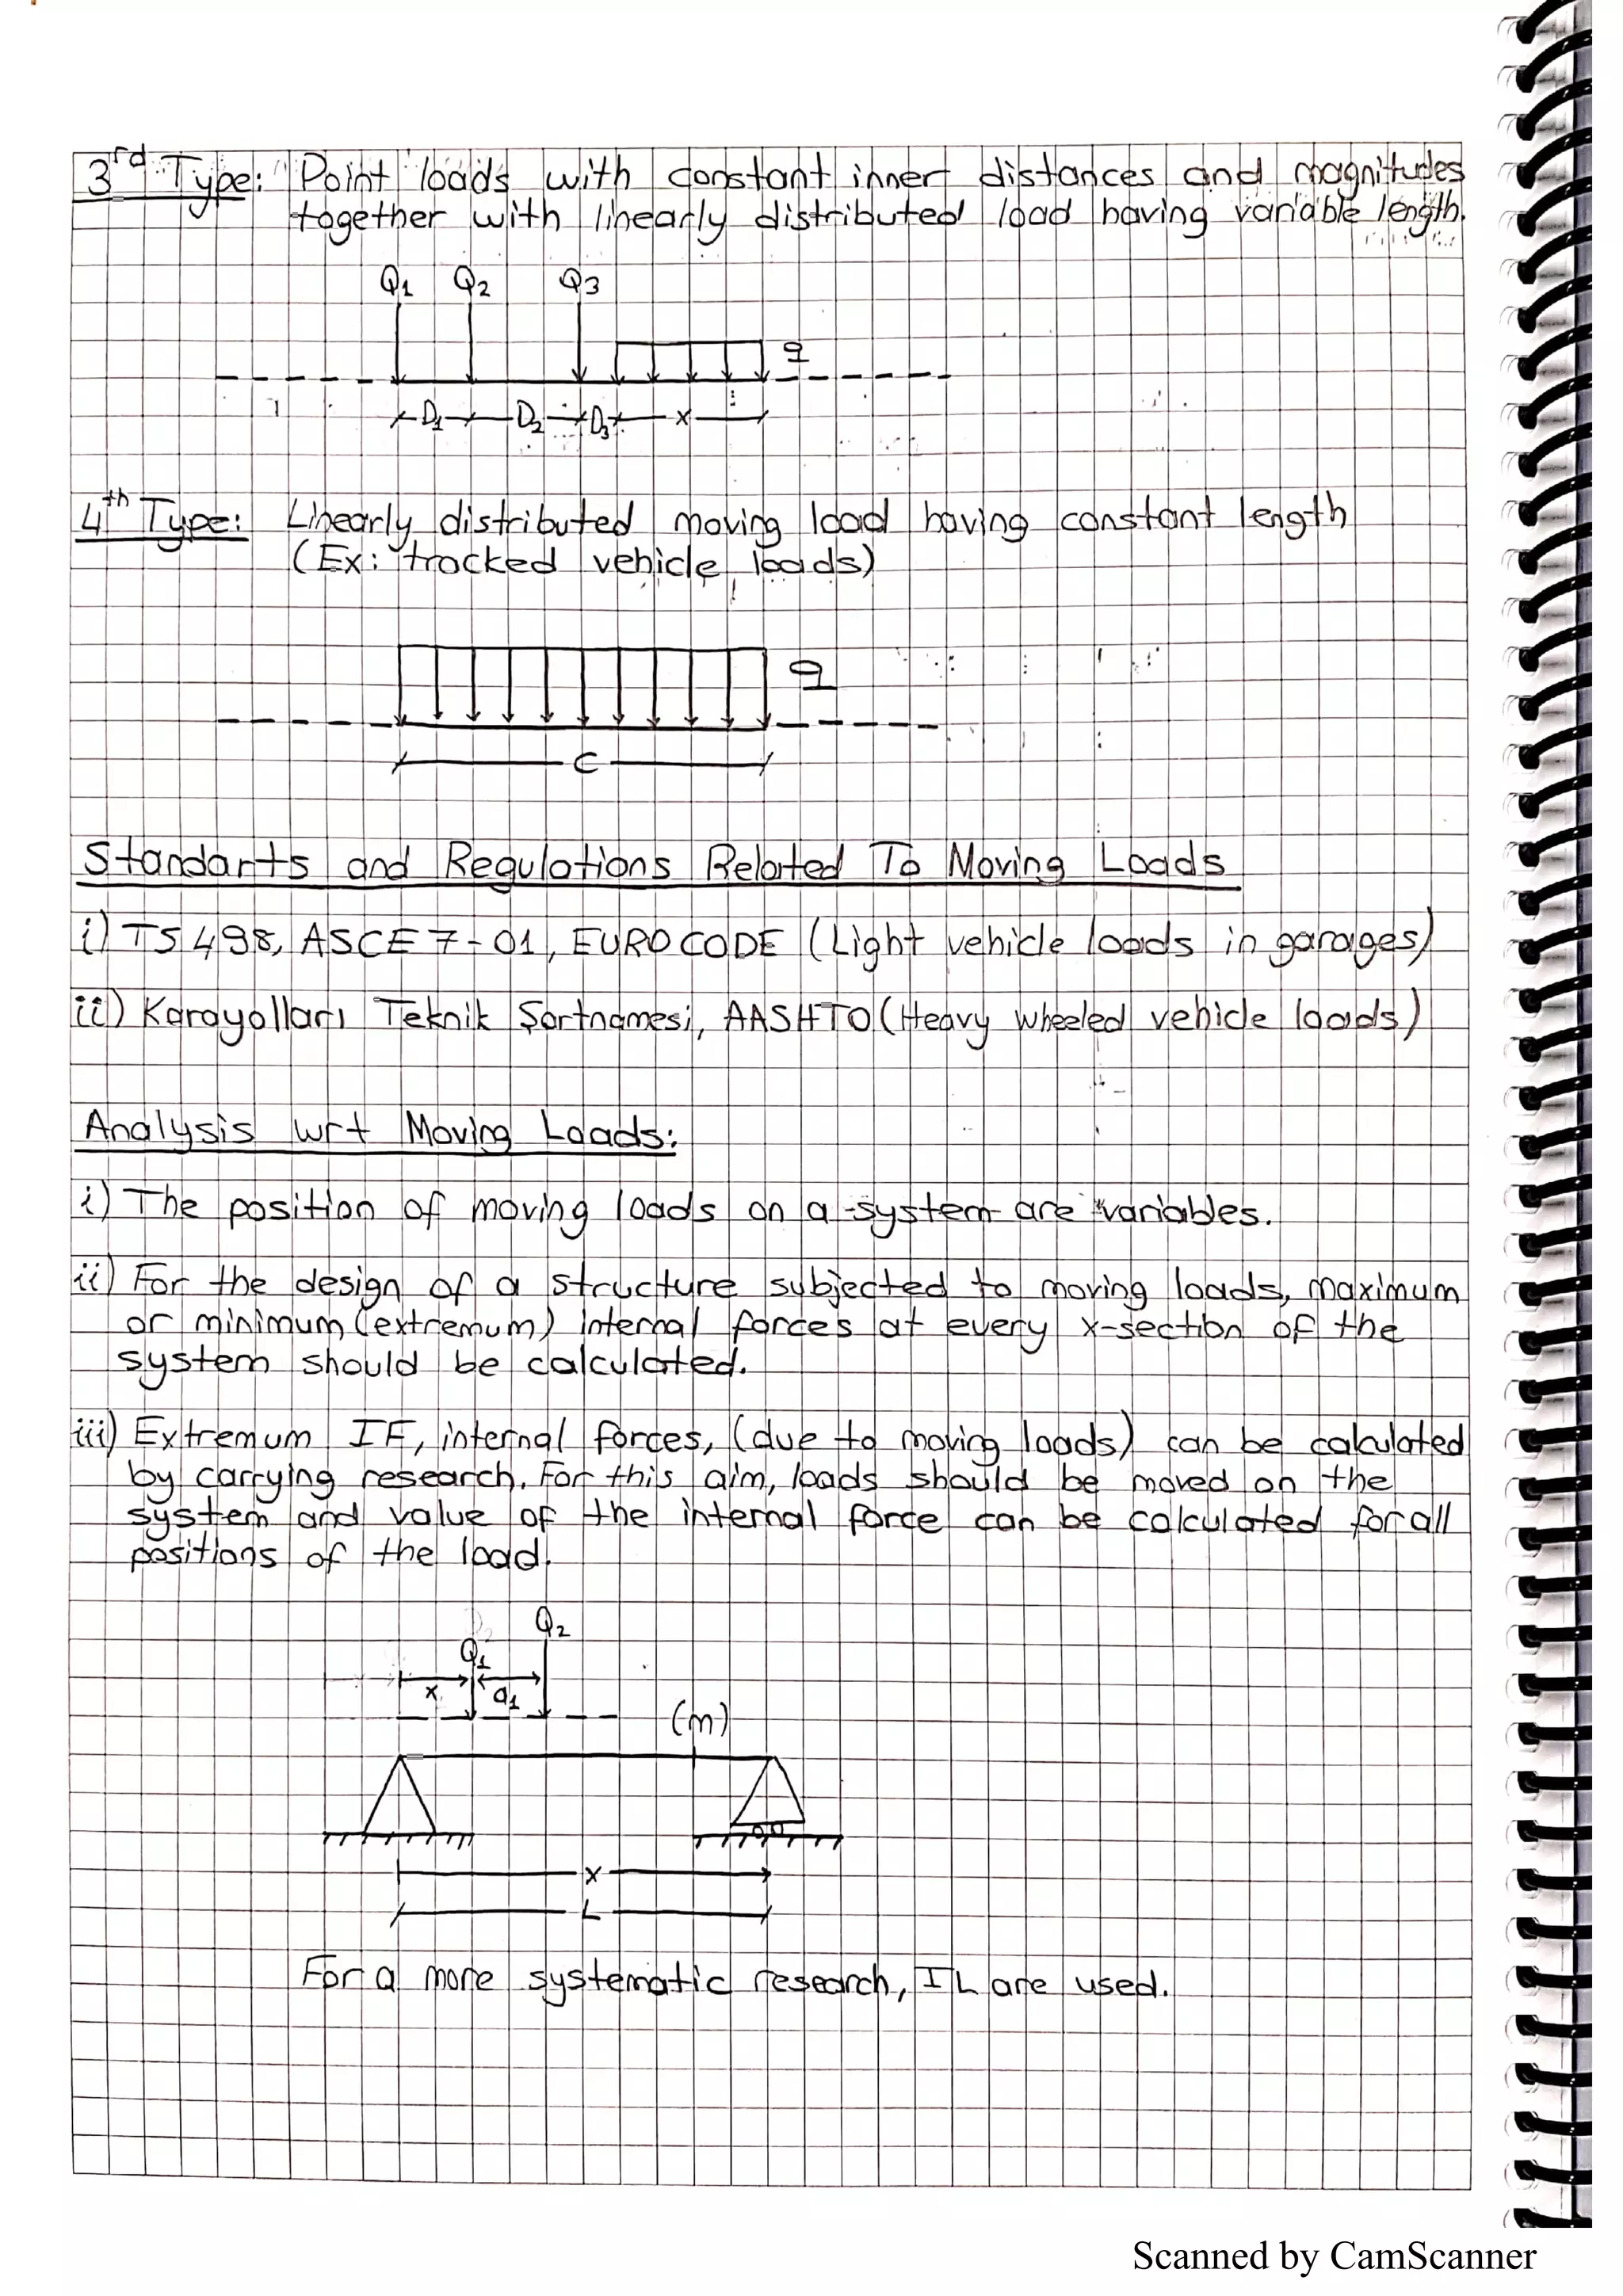 3rd Type: Point loads with constant inner distances and magnitudes
together with linearly distributed load having variable length.
Q1 Q2 Q3
q
D1 D2 D3 x
4th Type: Linearly distributed moving load having constant length
(Ex: tracked vehicle loads)
q
C
Standarts and Regulations Related To Moving Loads
i) TS 498, ASCE 7-01, EUROCODE (Light vehicle loads in garages)
ii) Karayolları Teknik Şartnamesi, AASHTO (Heavy wheeled vehicle loads)
Analysis wrt Moving Loads:
i) The position of moving loads on a system are variables.
ii) For the design of a structure subjected to moving loads, maximum
or minimum (extremum) internal forces at every x-section of the
system should be calculated.
iii) Extremum IF, internal forces, (due to moving loads) can be calculated
by carrying research. For this aim, loads should be moved on the
system and value of the internal force can be calculated for all
positions of the load.
Q2
Q1
x a1
(m)
x
L
For a more systematic research, IL are used.
Scanned by CamScanner